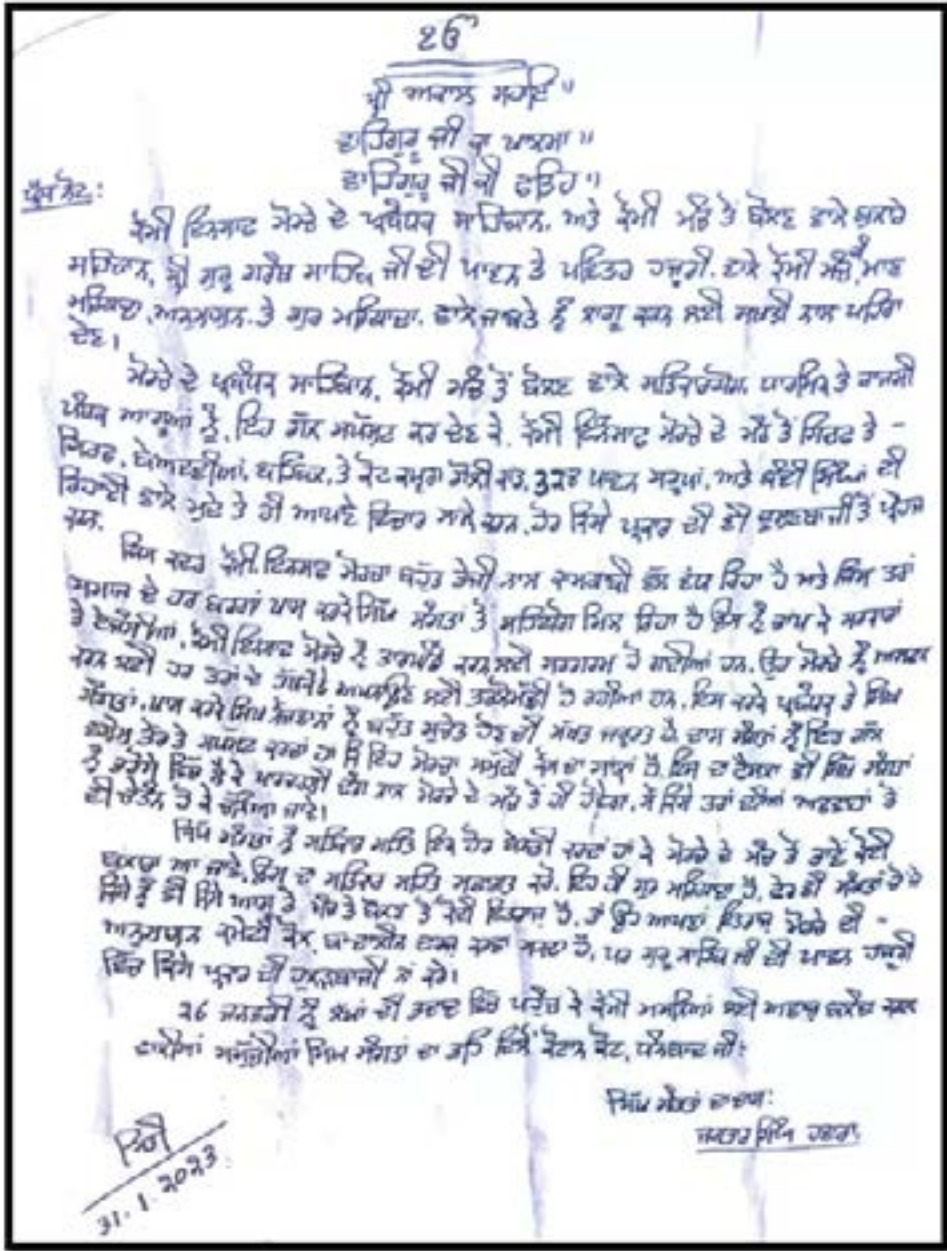 ੴ
ਸ੍ਰੀ ਅਕਾਲ ਸਹਾਇ॥
ਵਾਹਿਗੁਰੂ ਜੀ ਕਾ ਖਾਲਸਾ॥
ਵਾਹਿਗੁਰੂ ਜੀ ਕੀ ਫਤਿਹ॥
ਪ੍ਰੈੱਸ ਨੋਟ:
ਕੌਮੀ ਇਨਸਾਫ ਮੋਰਚੇ ਦੇ ਪ੍ਰਬੰਧਕ ਸਾਹਿਬਾਨ, ਅਤੇ ਕੌਮੀ ਮੰਚ ਤੋਂ ਬੋਲਣ ਵਾਲੇ ਬੁਲਾਰੇ
ਸਹਿਬਾਨ, ਸ੍ਰੀ ਗੁਰੂ ਗਰੰਥ ਸਾਹਿਬ ਜੀ ਦੀ ਪਾਵਨ ਤੇ ਪਵਿਤਰ ਹਜ਼ੂਰੀ, ਵਾਲੇ ਕੌਮੀ ਮੰਚ ਮਾਣ
ਮਰਿਯਾਦਾ, ਅਨੁਸ਼ਾਸਨ, ਤੇ ਗੁਰ ਮਰਿਯਾਦਾ, ਵਾਲੇ ਜ਼ਾਬਤੇ ਨੂੰ ਲਾਗੂ ਕਰਨ ਲਈ ਸਖਤੀ ਨਾਲ ਪਹਿਰਾ
ਦੇਣ।
ਮੋਰਚੇ ਦੇ ਪ੍ਰਬੰਧਕ ਸਾਹਿਬਾਨ, ਕੌਮੀ ਮੰਚ ਤੋਂ ਬੋਲਣ ਵਾਲੇ ਸਤਿਕਾਰਯੋਗ, ਧਾਰਮਿਕ ਤੇ ਰਾਜਸੀ
ਪੰਥਕ ਆਗੂਆਂ ਨੂੰ, ਇਹ ਗੱਲ ਸਪੱਸ਼ਟ ਕਰ ਦੇਣ ਕੇ, ਕੌਮੀ ਇਨਸਾਫ ਮੋਰਚੇ ਦੇ ਮੰਚ ਤੋਂ ਸਿਰਫ ਤੇ -
ਸਿਰਫ, ਬੇਅਦਬੀਆਂ, ਬਹਿਬਲ, ਤੇ ਕੋਟ ਕਪੂਰਾ ਗੋਲੀ ਕਾਂਡ, 328 ਪਾਵਨ ਸਰੂਪਾਂ, ਅਤੇ ਬੰਦੀ ਸਿੰਘਾਂ ਦੀ
ਰਿਹਾਈ ਵਾਲੇ ਮੁਦੇ ਤੇ ਹੀ ਆਪਣੇ ਵਿਚਾਰ ਸਾਂਝੇ ਕਰਨ, ਹੋਰ ਕਿਸੇ ਪ੍ਰਕਾਰ ਦੀ ਵੀ ਦੂਸ਼ਣਬਾਜ਼ੀ ਤੋਂ ਪ੍ਰਹੇਜ਼
ਕਰਨ.
ਜਿਸ ਕਦਰ ਕੌਮੀ ਇਨਸਾਫ ਮੋਰਚਾ ਬਹੁਤ ਤੇਜੀ ਨਾਲ ਕਾਮਯਾਬੀ ਵੱਲ ਵੱਧ ਰਿਹਾ ਹੈ ਅਤੇ ਜਿਸ ਤਰਾਂ
ਸਮਾਜ ਦੇ ਹਰ ਵਰਗਾਂ ਖਾਸ ਕਰਕੇ ਸਿੱਖ ਸੰਗਤਾਂ ਤੋਂ ਸਹਿਯੋਗ ਮਿਲ ਰਿਹਾ ਹੈ ਇਸ ਨੂੰ ਭਾਂਪ ਕੇ ਸਰਕਾਰਾਂ
ਤੇ ਏਜੰਸੀਆਂ, ਕੌਮੀ ਇਨਸਾਫ ਮੋਰਚੇ ਨੂੰ ਤਾਰਪੀਡੋ ਕਰਨ ਲਈ ਸਰਗਰਮ ਹੋ ਗਈਆਂ ਹਨ,
ਕਰਨ ਲਈ ਹਰ ਤਰਾਂ ਦੇ ਹੱਥਕੰਡੇ ਅਪਨਾਉਣ ਲਈ ਹੋ ਰਹੀਆਂ ਹਨ, ਇਸ ਕਰਕੇ ਪ੍ਰਬੰਧਕ ਤੇ ਸਿੱਖ
ਸੰਗਤਾਂ, ਖਾਸ ਕਰਕੇ ਸਿੱਖ ਨੌਜਵਾਨਾਂ ਨੂੰ ਬਹੁਤ ਸੁਚੇਤ ਹੋਣ ਦੀ ਸਖਤ ਜਰੂਰਤ ਹੈ, ਦਾਸ ਸੰਗਤਾਂ ਨੂੰ ਇਹ ਗੱਲ
ਤੌਰ ਤੇ ਸਪੱਸ਼ਟ ਕਰਦਾ ਹਾਂ ਕਿ ਇਹ ਮੋਰਚਾ ਸਮੁੱਚੀ ਕੌਮ ਦਾ ਸਾਂਝਾ ਹੈ, ਇਸ ਦਾ ਫੈਸਲਾ ਵੀ ਸਿੱਖ ਸੰਗਤਾਂ
ਨੂੰ ਭਰੋਸੇ ਵਿੱਚ ਲੈ ਕੇ ਪਾਰਦਰਸ਼ੀ ਢੰਗ ਨਾਲ ਮੋਰਚੇ ਦੇ ਮੰਚ ਤੋਂ ਹੀ ਹੋਵੇਗਾ, ਸੋ ਕਿਸੇ ਤਰਾਂ ਦੀਆਂ ਅਫਵਾਹਾਂ ਤੋਂ
ਵੀ ਚੇਤੰਨ ਹੋ ਕੇ ਚੱਲਿਆ ਜਾਵੇ।
ਸਿੱਖ ਸੰਗਤਾਂ ਨੂੰ ਸਤਿਕਾਰ ਸਹਿਤ ਇਕ ਹੋਰ ਬੇਨਤੀ ਕਰਦਾ ਹਾਂ ਕੇ ਮੋਰਚੇ ਦੇ ਮੰਚ ਤੇ ਭਾਵੇਂ ਕੋਈ
ਬੁਲਾਰਾ ਆ ਜਾਵੇ, ਉਸ ਦਾ ਸਤਿਕਾਰ ਸਹਿਤ ਸੁਆਗਤ ਕਰੋ, ਇਹ ਹੀ ਗੁਰ ਮਰਿਯਾਦਾ ਹੈ, ਫੇਰ ਵੀ ਸੰਗਤਾਂ ਚੋਂ ਜੇ
ਕਿਸੇ ਨੂੰ ਵੀ ਕਿਸੇ ਆਗੂ ਦੇ ਮੰਚ ਤੇ ਬੋਲਣ ਤੇ ਕੋਈ ਇਤਰਾਜ਼ ਹੈ, ਤਾਂ ਉਹ ਆਪਣਾ ਇਤਰਾਜ਼ ਮੋਰਚੇ ਦੀ -
ਅਨੁਸ਼ਾਸਨ ਕਮੇਟੀ ਕੋਲ, ਦਰਜ਼ ਕਰਵਾ ਸਕਦਾ ਹੈ, ਪਰ ਗੁਰੂ ਸਾਹਿਬ ਜੀ ਦੀ ਪਾਵਨ ਹਜ਼ੂਰੀ
ਵਿੱਚ ਕਿਸੇ ਪ੍ਰਕਾਰ ਦੀ ਹੁਲੜਬਾਜੀ ਨਾਂ ਕਰੋ।
26 ਜਨਵਰੀ ਨੂੰ ਲੱਖਾਂ ਦੀ ਤਦਾਦ ਵਿੱਚ ਪਹੁੰਚ ਕੇ ਕੌਮੀ ਮਸਲਿਆਂ ਲਈ ਅਵਾਜ਼ ਬੁਲੰਦ ਕਰਨ
ਵਾਲੀਆਂ ਸਮੁੱਚੀਆਂ ਸਿਖ ਸੰਗਤਾਂ ਦਾ ਤਹਿ ਦਿਲੋਂ ਕੋਟਾਨ ਕੋਟ, ਧੰਨਵਾਦ ਜੀ:
ਸਿੱਖ ਸੰਗਤਾਂ ਦਾ ਦਾਸ:
ਜਗਤਾਰ ਸਿੰਘ ਹਵਾਰਾ
ਮਿਤੀ
31.1.2023